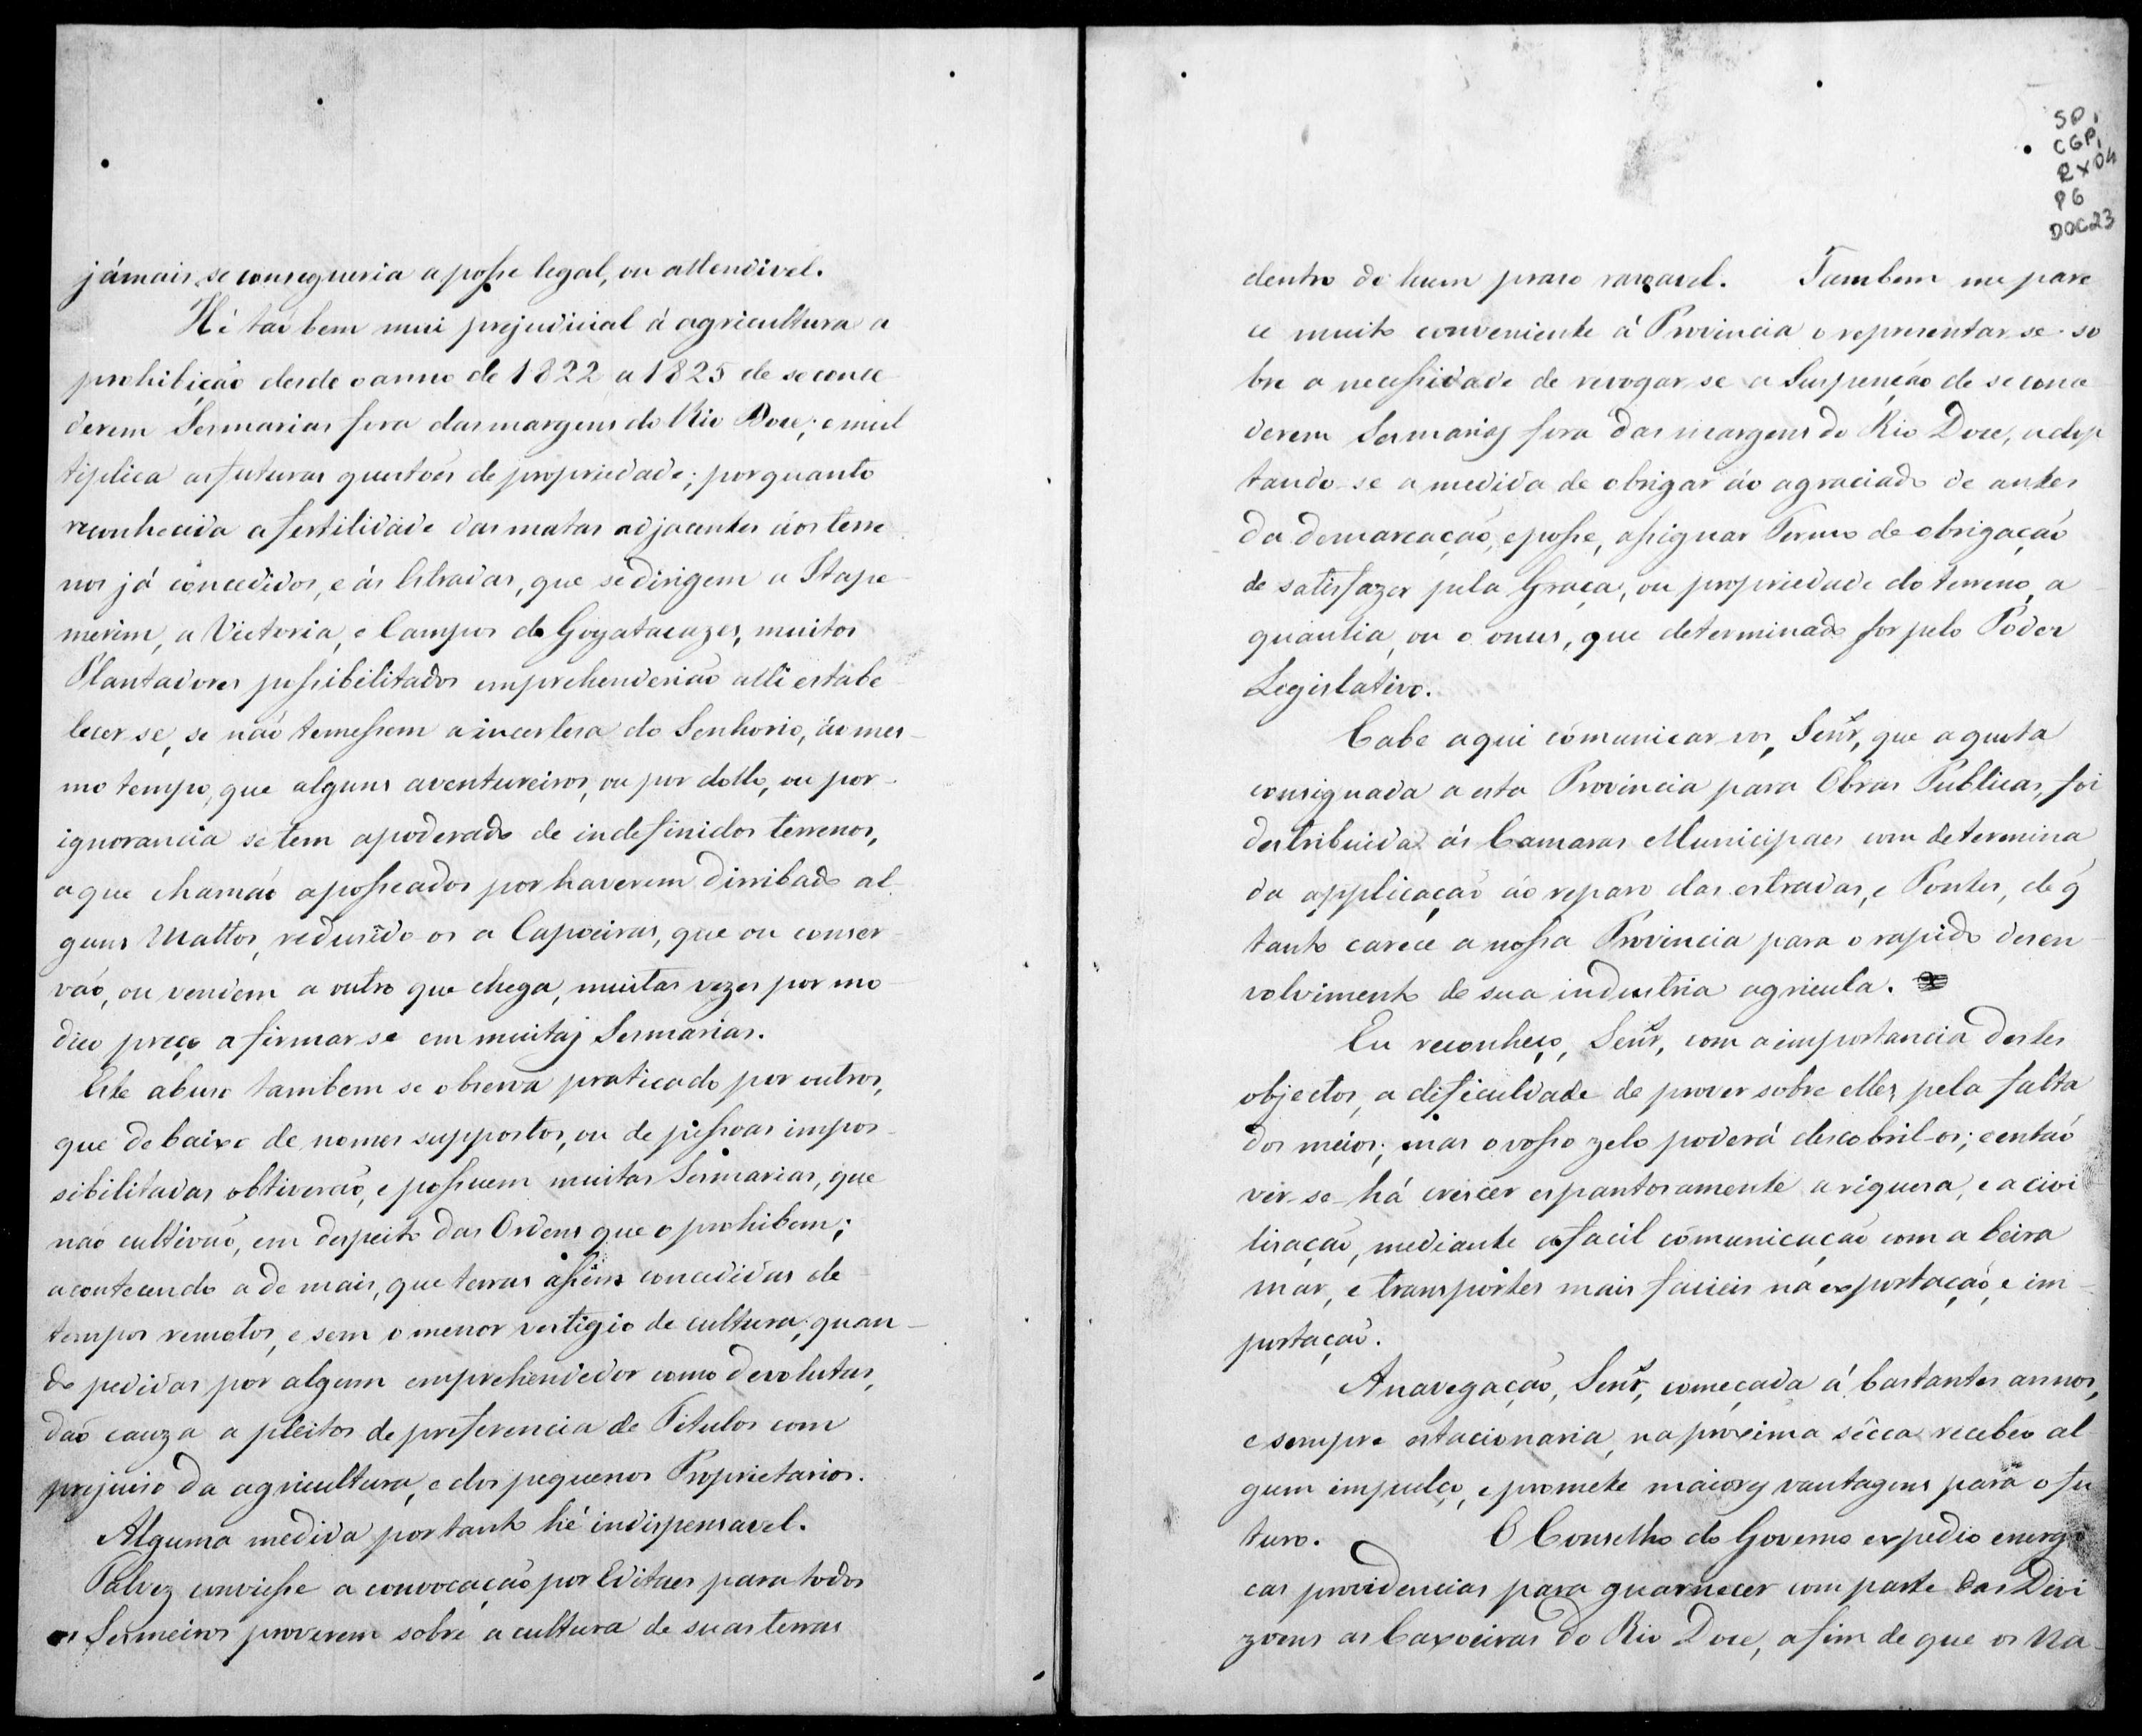 jámais se consegueria a posse legal, ou attendivel.
Hé taõ bem mui prejudicial á agricultura a
prohibiçaõ desde o anno de 1822 a 1825 de se conce
derem Sesmarias fora das margens do Rio Doce; e mul
tiplica as futuras questoẽs de propriedade; por quanto
reconhecida a fertilidade das matas adjacentes áos terre
nos já concedidos, e ás Estradas, que se dirigem a Itape
merim, a Victoria, e Campos de Goyatacazes, muitos
Plantadores possibilitados emprehenderiaõ alli estabe
lecer se, se naõ temessem a incertesa do Senhorio, áo mes-
mo tempo, que alguns aventureiros, ou por dollo, ou por-
ignorancia se tem apoderado de indefinidos terrenos,
a que chamaõ aposseados por haverem dirribado al-
guns Mattos, redusido os a Capoeiras, que ou conser-
vaõ, ou vendem a outro que chega, muitas vezes por mo
dico preço a firmar se em muitas Sesmarias.
Este abuso tambem se observa praticado por outros,
que de baixo de nomes suppostos, ou de pessoas impos-
sibilitadas obtiveraõ, e possuem muitas Sesmarias, que
naõ cultivaõ, em despeito das Ordens que o prohibem;
acontecendo a de mais, que terras assim concedidas de
tempos remotos, e sem o menor vestigio de cultura, quan-
do pedidas por algum emprehendedor como devolutas,
daõ cauza a pleitos de preferencia de Titulos com
prejuiso da agricultura, e dos pequenos Proprietarios.
Alguma medida por tanto hé indispensavel.
Talvez conviesse a convocaçaõ por Editaes para todos
os Sesmeiros proverem sobre a cultura de suas terras
SP,
CGP,
RX04
P6
DOC23
dentro de hum praso rasoavel. Tambem me pare
ce muito conveniente á Provincia o representar se so
bre a necessidade de revogar se a Suspençaõ de se conce
derem Sesmarias fora das margens do Rio Doce, adop
tando se a medida de obrigar áo agraciado de antes
da demarcaçaõ, e posse, assignar Termo de obrigaçaõ
de satisfazer pela Graça, ou propriedade do terreno, a
quantia, ou o onus, que determinado for pelo Poder
Legislativo.
Cabe aqui cómunicar vos, Senr.es, que a quota
consignada a esta Provincia para Obras Publicas, foi
destribuida ás Camaras Municipaes com determina
da applicaçaõ áo reparo das estradas, e Pontes, de q̃
tanto carece a nossa Provincia para o rapido desen-
volvimento de sua industria agricula.
Eu reconheço, Senr.es, com a importancia destes
objectos, a dificuldade de prover sobre elles pela falta
dos meios; mas o vosso zelo poderá descobril-os; e entaõ
ver-se-há crescer espantosamente a riquesa, e a civi
lisaçaõ, mediante a facil cómunicaçaõ com a beira
mar, e transportes mais faceis na exportaçaõ, e im-
portaçaõ.
A navegaçaõ, Senr.es, começada á bastantes annos,
e sempre estacionaria, na proxima sêcca recebeo al
gum impulço, e promete maiores vantagens para o fu
turo. O Conselho do Governo expedio energi
cas providencias para guarnecer com parte das Divi
zoens as Caxoeiras do Rio Doce, a fim de que os Na-